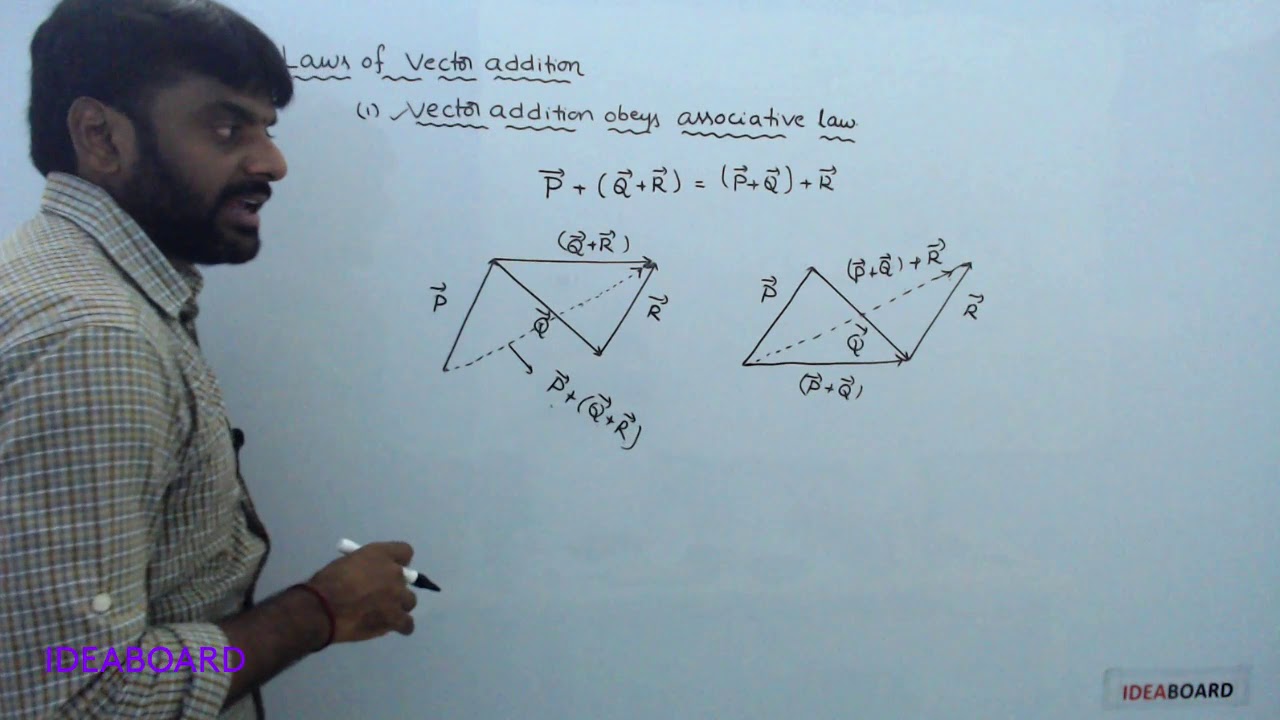 Laws of Vector addition
(1) Vector addition obeys associative law
P⃗ + (Q⃗ + R⃗) = (P⃗ + Q⃗) + R⃗
(Q⃗ + R⃗)
P⃗
Q⃗
R⃗
P⃗ + (Q⃗ + R⃗)
(P⃗ + Q⃗) + R⃗
P⃗
Q⃗
R⃗
(P⃗ + Q⃗)
IDEABOARD
IDEABOARD